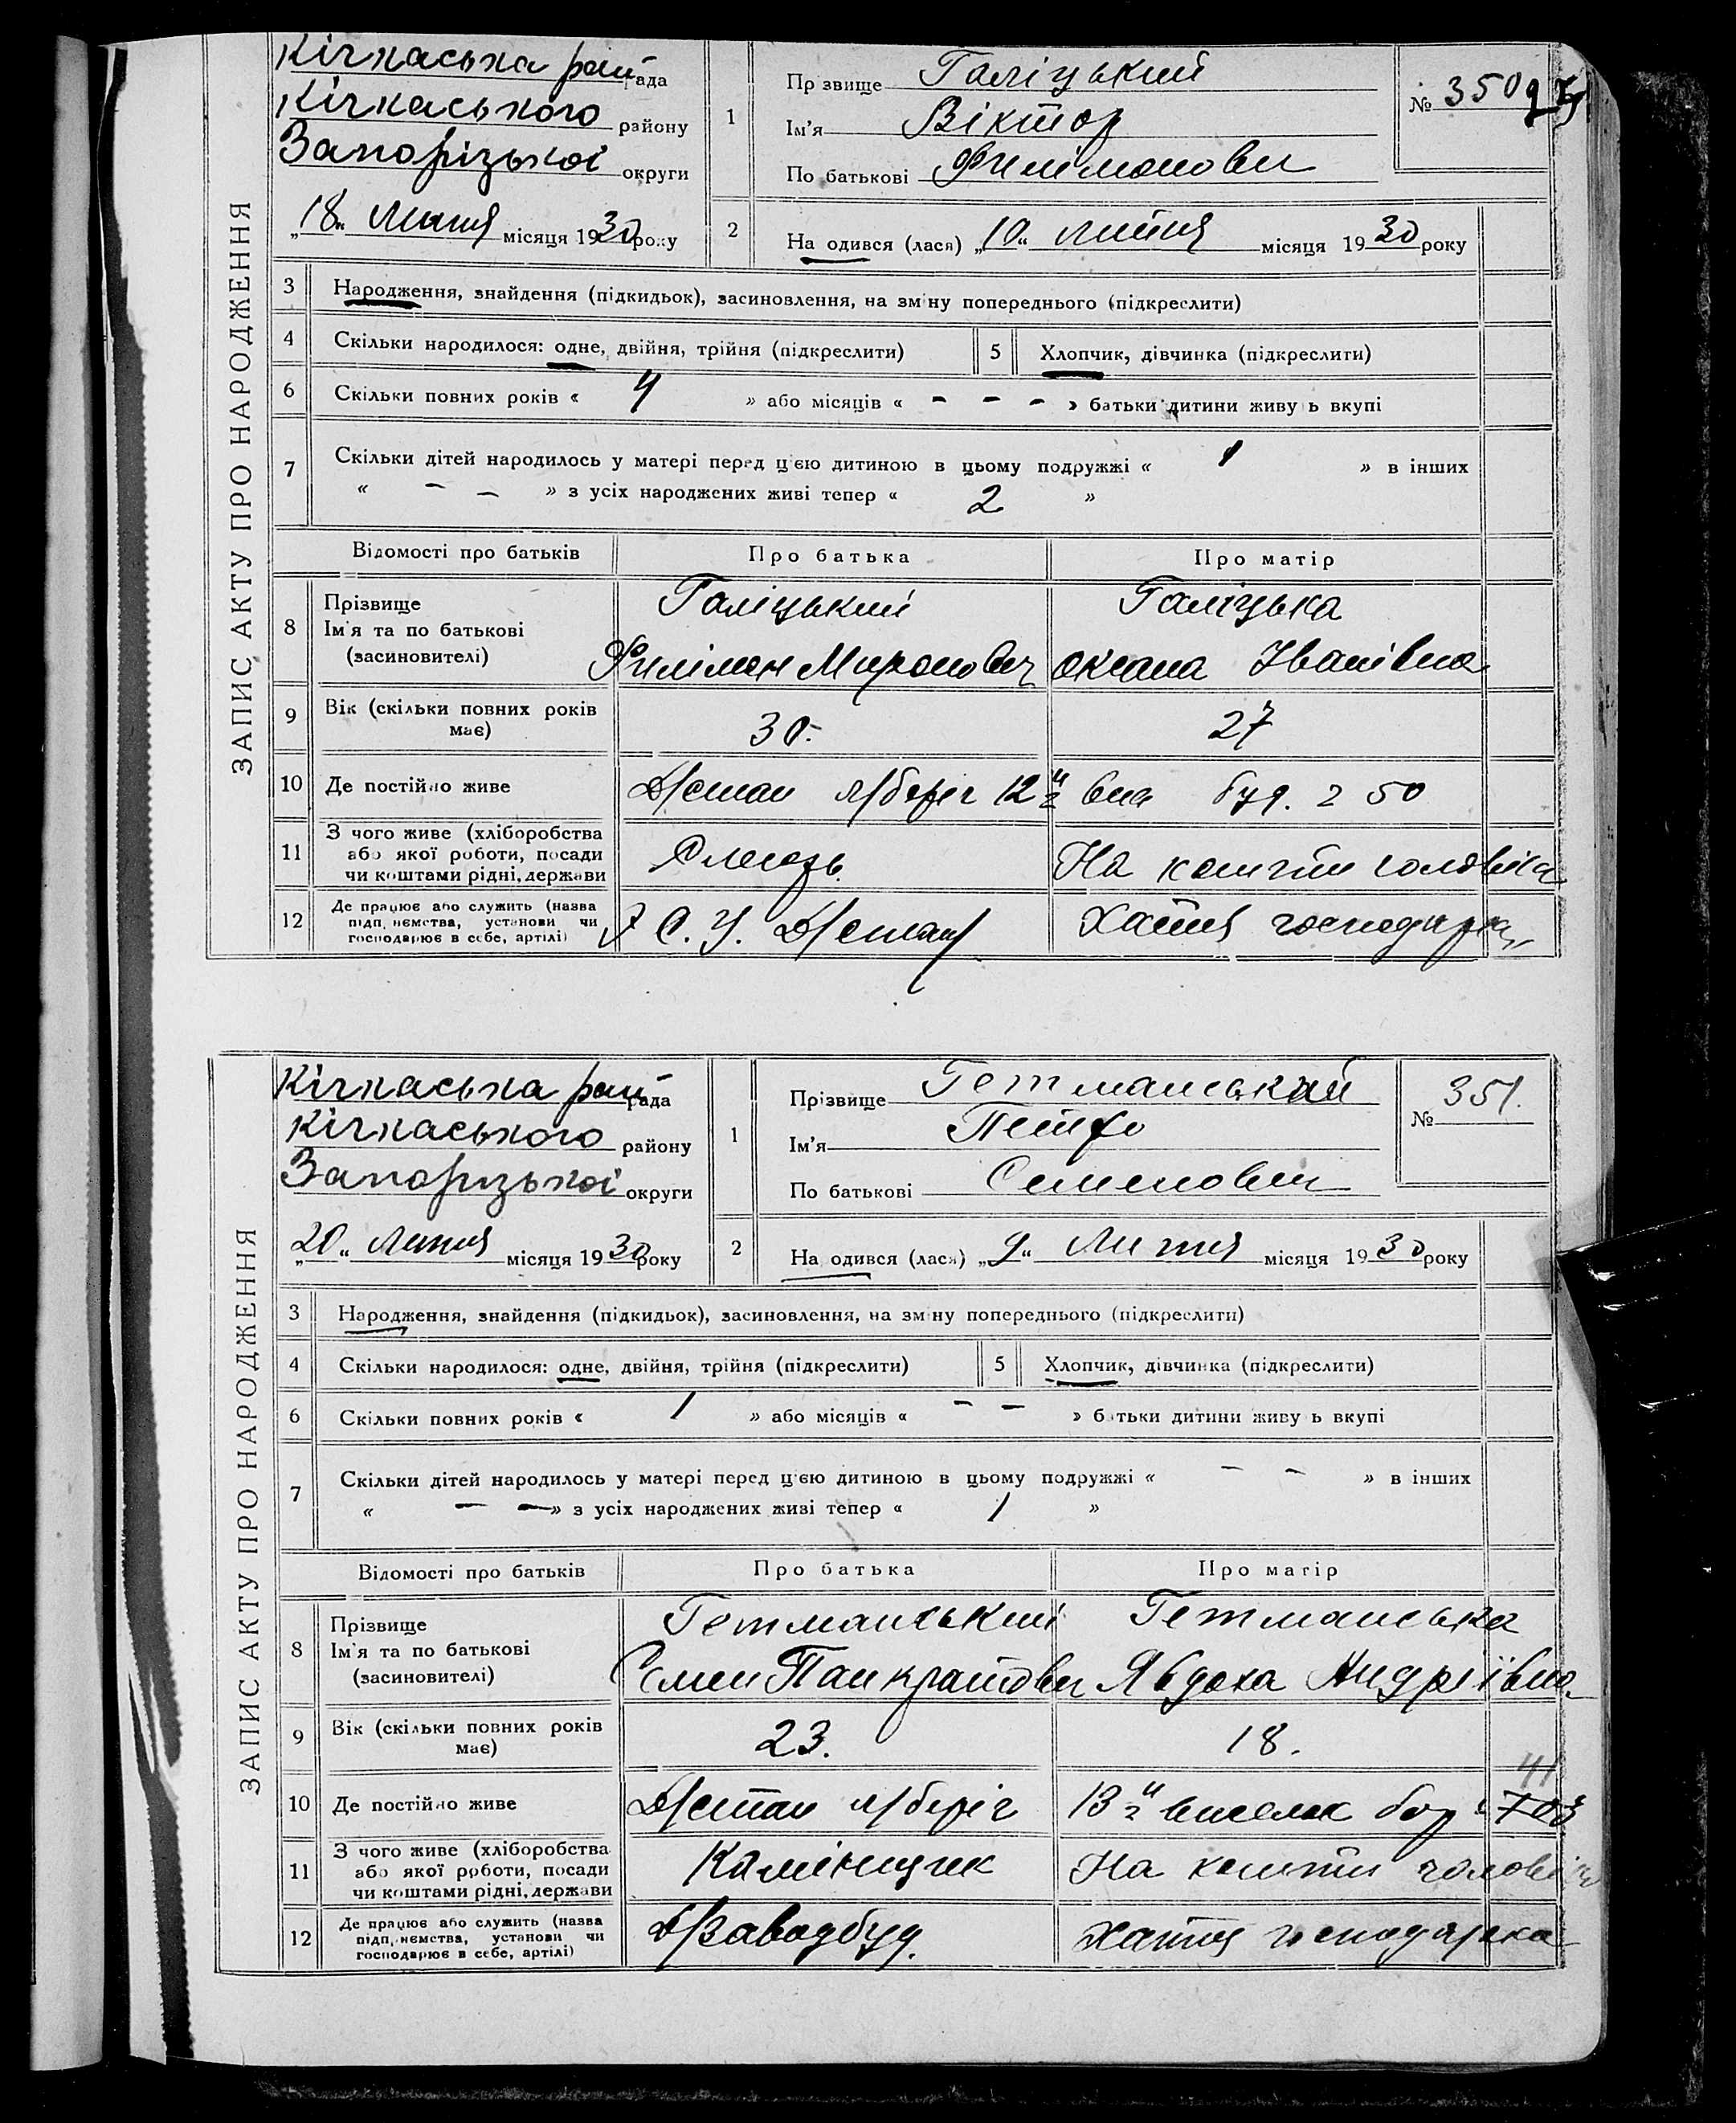 ЗАПИС АКТУ ПРО НАРОДЖЕННЯ
Кічкаська рай рада
Кічкаського району
Запорізької округи
„18“ Липня місяця 1930 року
1
Пр звище Галіцький
Ім'я Віктор
По батькові Филімонович
№ 350
2
На одився (лася) „10“ липня місяця 1930 року
3 Народження, знайдення (підкидьок), засиновлення, на зм ну попереднього (підкреслити)
4 Скільки народилося: одне, двійня, трійня (підкреслити) 5 Хлопчик, дівчинка (підкреслити)
6 Скільки повних років « 4 » або місяців « - - - » батьки дитини живу ь вкупі
7 Скільки дітей народилось у матері перед ц єю дитиною в цьому подружжі « 1 » в інших
« - - » з усіх народжених живі тепер « 2 »
Відомості про батьків Про батька Про матір
8 Прізвище
Ім'я та по батькові
(засиновителі)
Галіцький
Филімон Миронович
Галіцька
Оксана Іванівна
9 Вік (скільки повних років має)
30. 27
10 Де постійно живе Д/стан л/беріг 12й вис буд. 2 50
11 З чого живе (хліборобства
або якої роботи, посади
чи коштами рідні, держави
Слюсарь На кошти чоловіка
12 Де працює або служить (назва
підп, ємства, установи чи
господарює в себе, артілі)
С. У. Д/стан Хатня господарка
ЗАПИС АКТУ ПРО НАРОДЖЕННЯ
Кічкаська рай рада
Кічкаського району
Запорізької округи
„20“ Липня місяця 1930 року
1
Прізвище Гетманський
Ім'я Петро
По батькові Семенович
№ 351.
2
На одився (лася) „9“ Липня місяця 1930 року
3 Народження, знайдення (підкидьок), засиновлення, на зм ну попереднього (підкреслити)
4 Скільки народилося: одне, двійня, трійня (підкреслити) 5 Хлопчик, дівчинка (підкреслити)
6 Скільки повних років « 1 » або місяців « - - » б тьки дитини живу ь вкупі
7 Скільки дітей народилось у матері перед ц єю дитиною в цьому подружжі « - - » в інших
« - - » з усіх народжених живі тепер « 1 »
Відомості про батьків Про батька Про матір
8 Прізвище
Ім'я та по батькові
(засиновителі)
Гетманський
Семен Панкратович
Гетманська
Явдоха Андріївна
9 Вік (скільки повних років має)
23. 18.
10 Де постійно живе Д/стан л/беріг 13й виселок 41
11 З чого живе (хліборобства
або якої роботи, посади
чи коштами рідні, держави
Камінщик На кошти чоловіка
12 Де працює або служить (назва
підп, ємства, установи чи
господарює в себе, артілі)
Д/Заводбуд. Хатня господарка